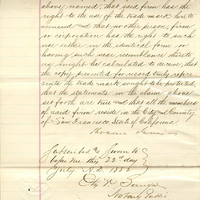 named, that said firm has the
right to the use of the trade mark herein
named and that no other person, firm
or corporation has the right to such
use either in the identical form or
having such near resemblance thereto
as might be calculated to deceive; that
the copy presented for record truly represents
the trade mark sought to be protected;
that the statements in the claim above
set forth are true and that all the members
of said firm reside in the City and County
of San Francisco State of California
Subscribed & sworn to
before me this 22nd day
July A.D. 1882
Notary Public